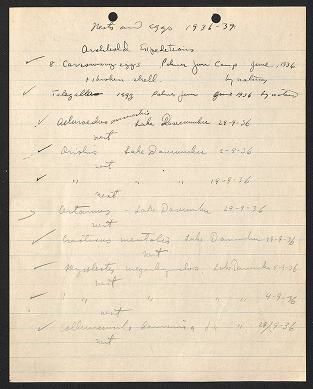 Nests and eggs 1936-39.
Archbold Expeditions
8 Cassowary eggs Palmer Junc Camp June 1936
+ broken shell. by natives
Talegallus 1 egg Palmer Junc June 1936 by native
Ailuroedus Lake Daviumbu 28-9-36
nest
Oriolus Lake Daviumbu 2-9-36
nest
" " " 19-9-36
nest
Artamus Lake Daviumbu 29-9-36
nest
Cracticus mentalis Lake Daviumbu 19-9-36
nest
Lake Daviumbu
nest
" " " 4-9-36
nest
" 28/9-36
nest